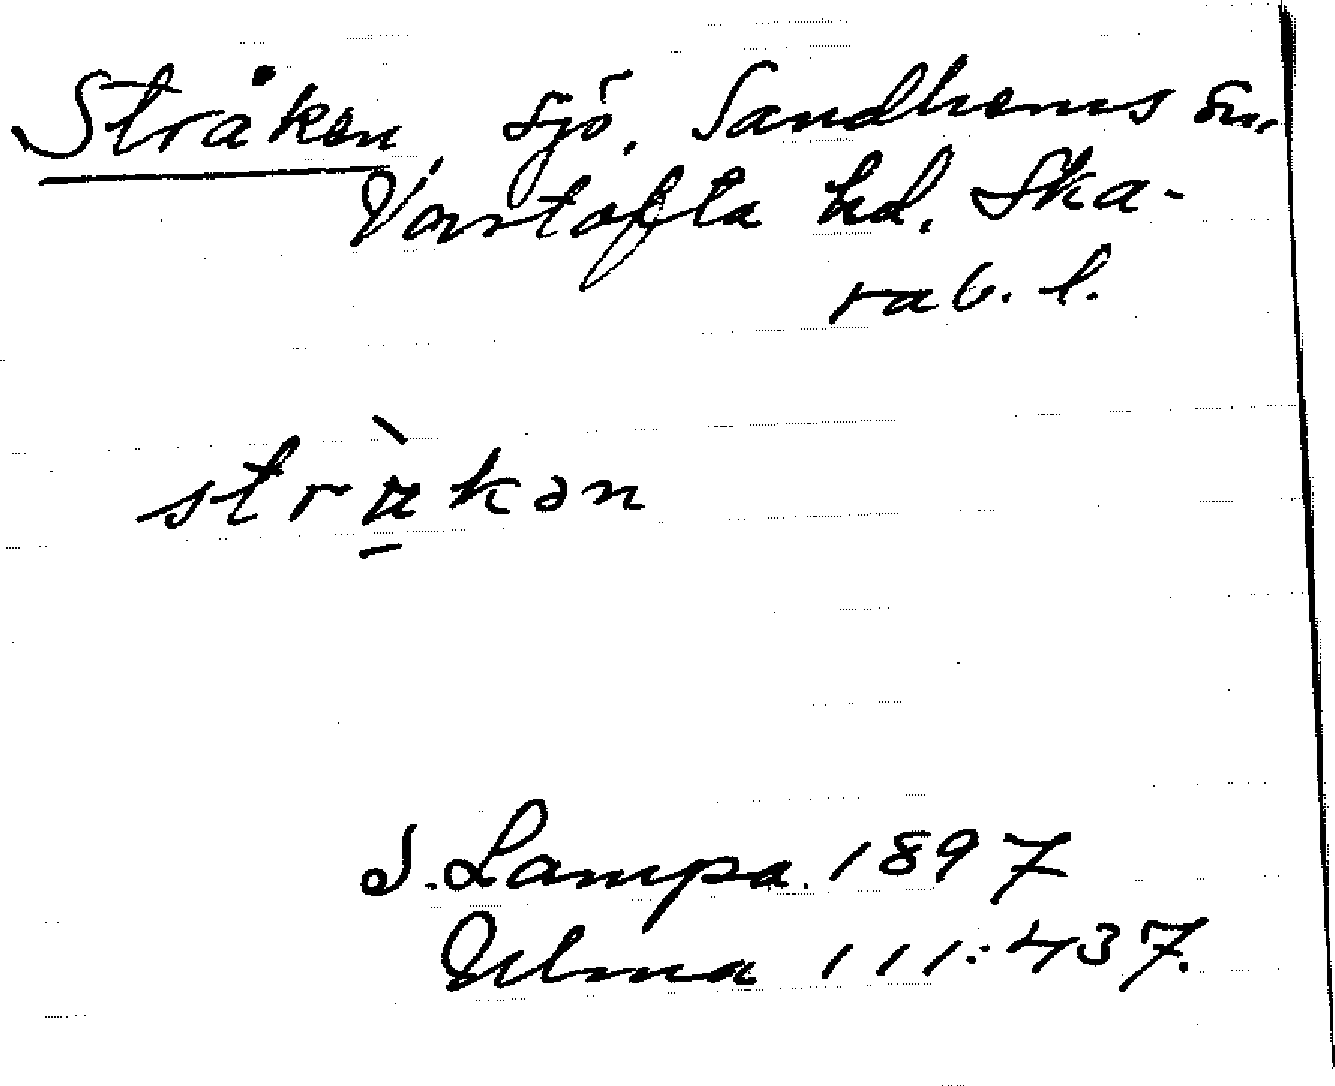 Stråken, sjö, Sandhems sn,
Vartofta hd, Ska-
rab. l.
strⱥ̀kən
S. Lampa. 1897
Ulma 111:437.